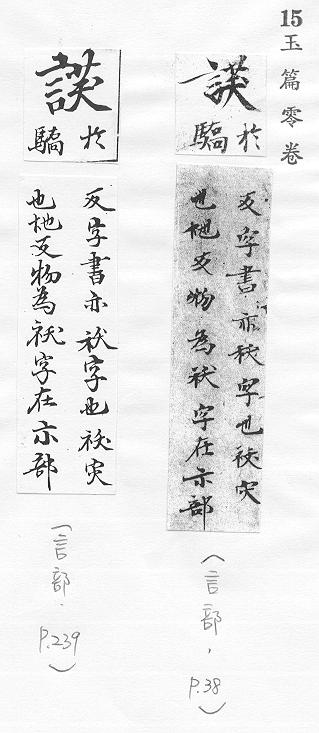 15玉篇零卷
於
驕
反字書亦祅字也祅灾
也地反物為祅字在示部
(言部, P.38)
於
驕
反字書亦祅字也祅灾
也地反物為祅字在示部
(言部, P.239)